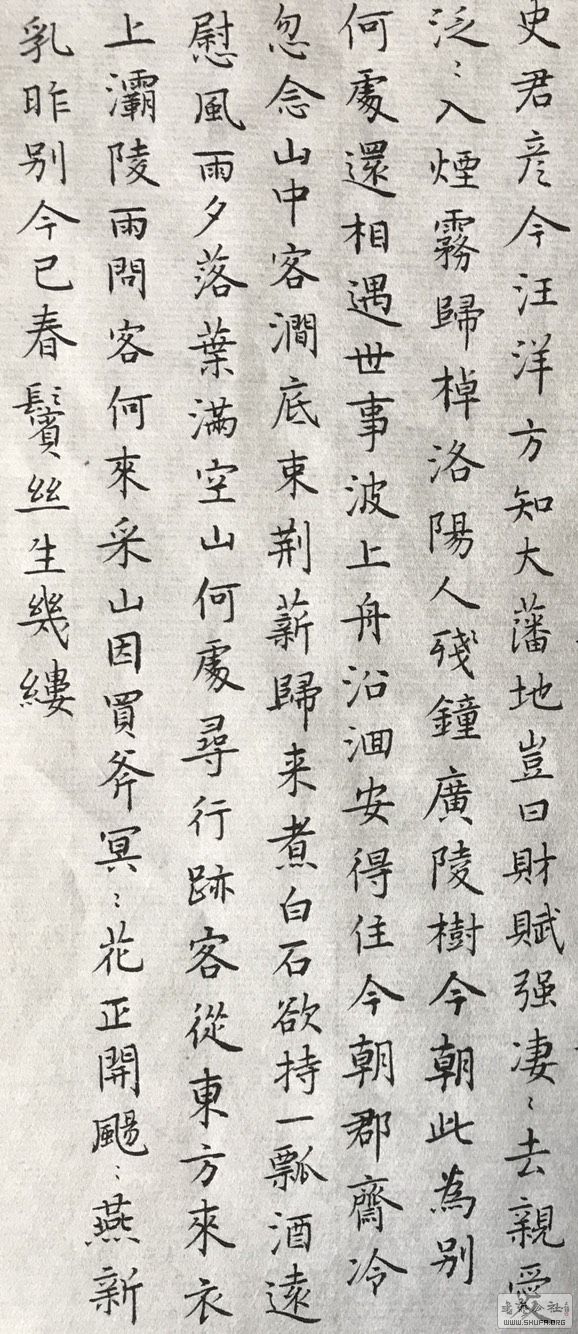 史君彦今汪洋方知大藩地豈曰財賦强凄〻去親愛
泛〻入煙霧歸棹洛陽人殘鐘廣陵樹今朝此為别
何處還相遇世事波上舟沿洄安得住今朝郡齋冷
忽念山中客澗底束荆薪歸来煮白石欲持一瓢酒遠
慰風雨夕落葉滿空山何處尋行跡客從東方來衣
上灞陵雨問客何來采山因買斧冥〻花正開颺〻燕新
乳昨别今已春鬢丝生幾縷
WWW.SHUFA.ORG